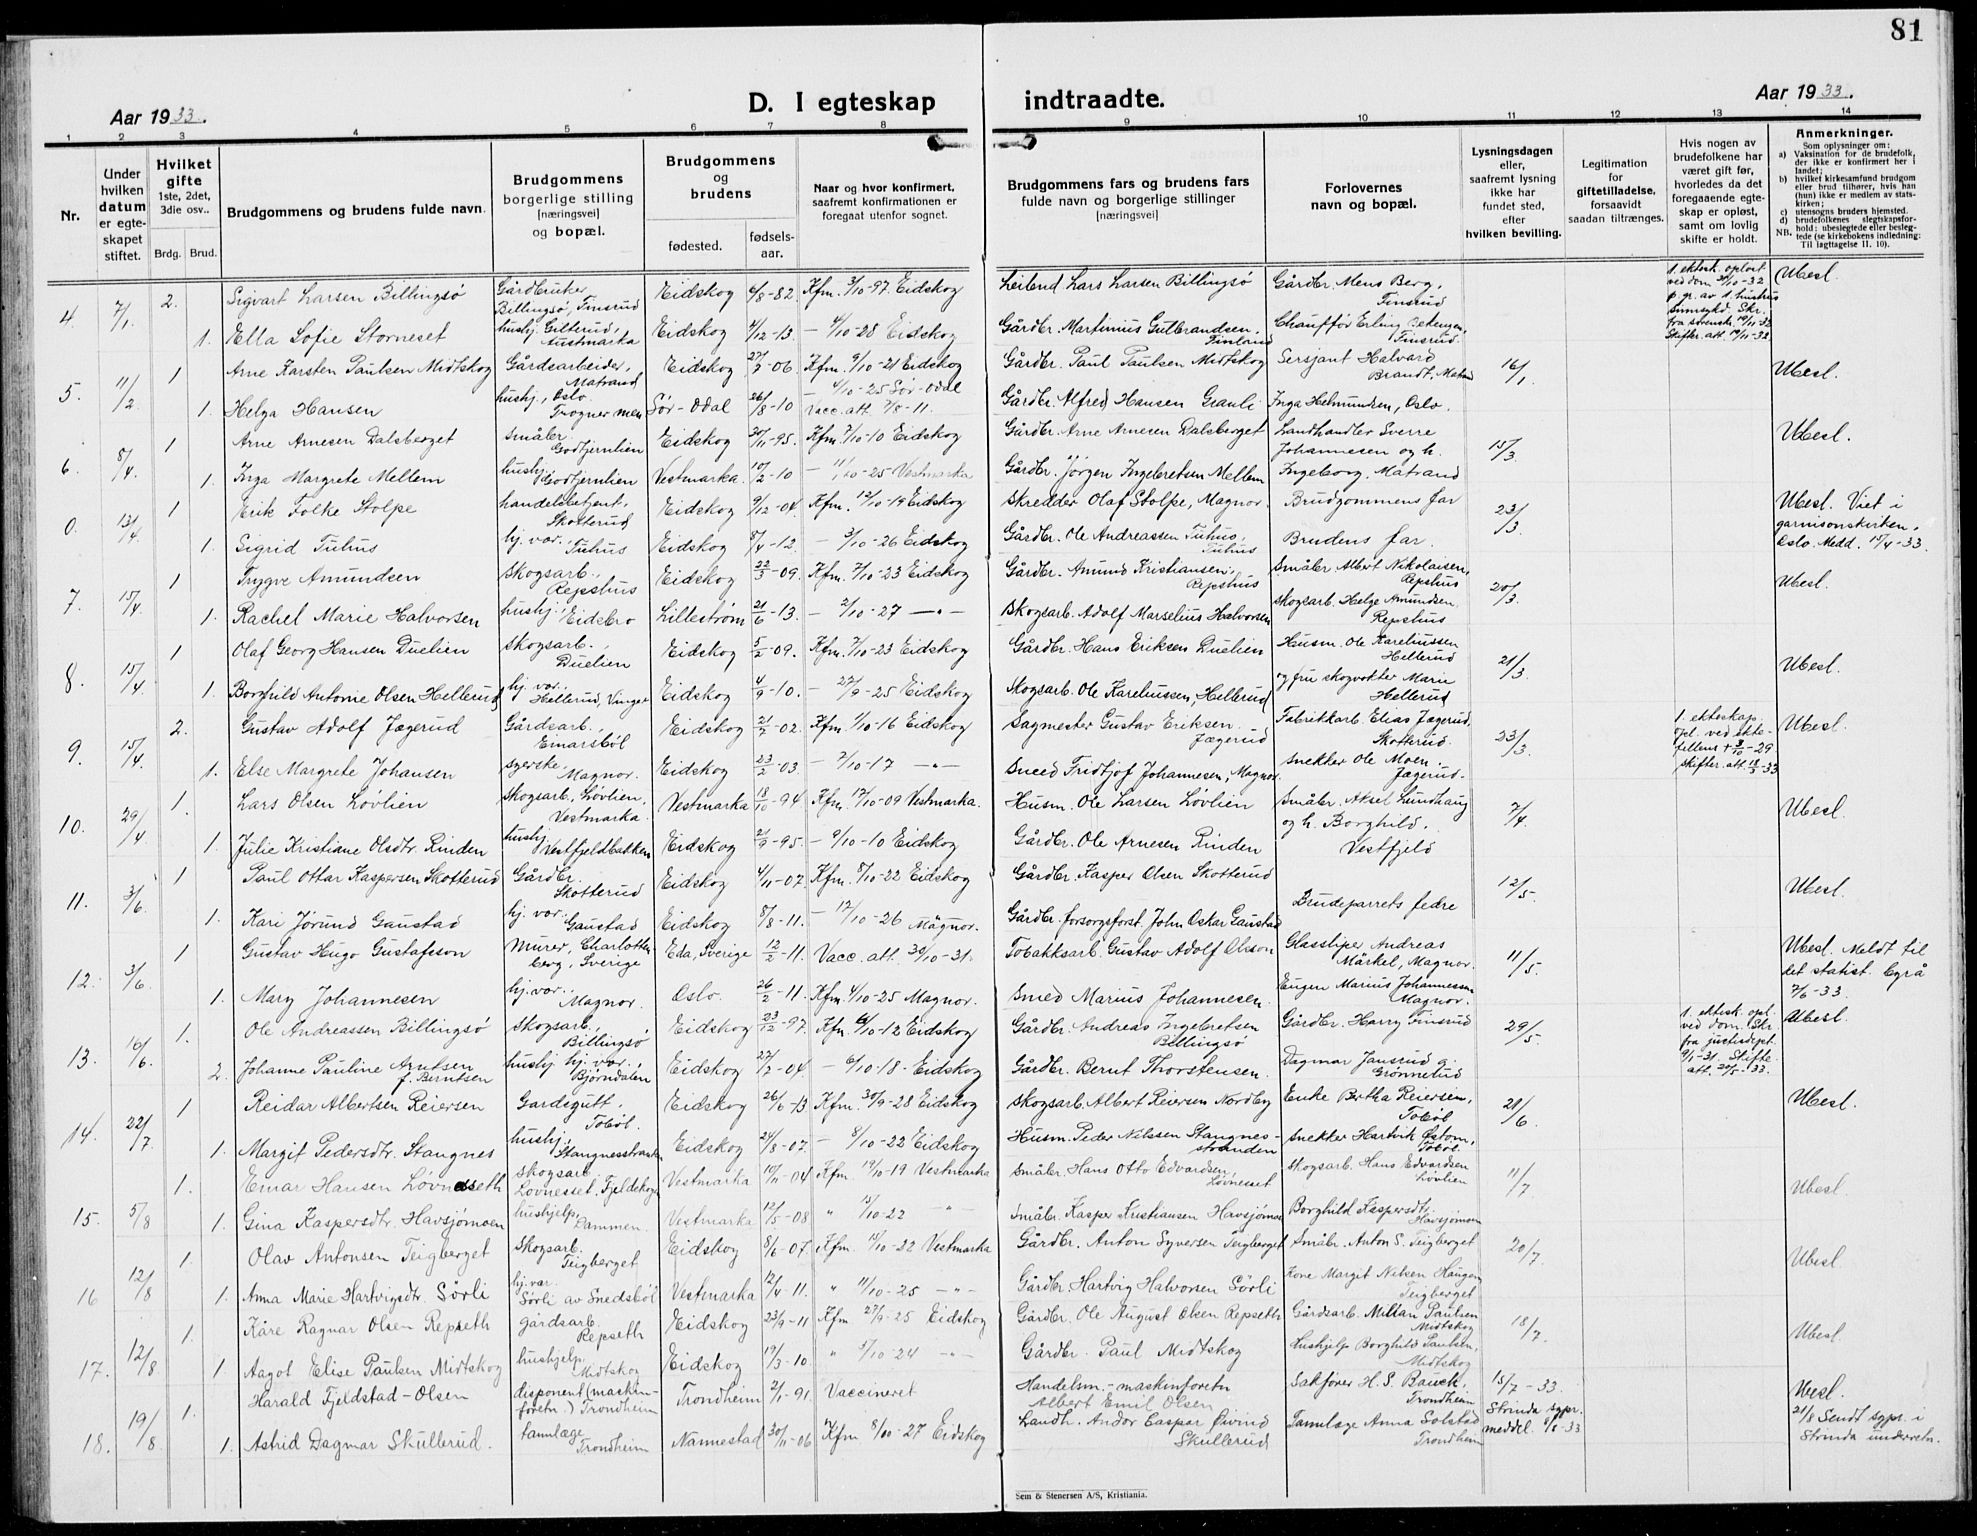 81
Aar 1933.
D. I egteskap indtraadte.
Aar 1933.
1 2 3 4 5 6 7 8 9 10 11 12 13 14
Nr.
Under hvilken datum er egteskapet stiftet.
Hvilket gifte 1ste, 2det, 3die osv..
Brdg. Brud.
Brudgommens og brudens fulde navn.
Brudgommens borgerlige stilling [næringsvei] og bopæl.
Brudgommens og brudens
fødested.
fødsels-aar.
Naar og hvor konfirmert, saafremt konfirmationen er foregaat utenfor sognet.
Brudgommens fars og brudens fars fulde navn og borgerlige stillinger [næringsvei]
Forlovernes navn og bopæl.
Lysningsdagen eller, saafremt lysning ikke har fundet sted, efter hvilken bevilling.
Legitimation for giftetilladelse, forsaavidt saadan tiltrænges.
Hvis nogen av brudefolkene har været gift før, hvorledes da det foregaaende egteskap er opløst, samt om lovlig skifte er holdt.
Anmerkninger.
Som oplysninger om:
a) Vaksination for de brudefolk, der ikke er konfirmert her i landet;
b) hvilket kirkesamfund brudgom eller brud tilhører, hvis han (hun) ikke er medlem av statskirken;
c) utensogns bruders hjemsted.
d) brudefolkenes slegtskapsforhold: ubeslegtede eller beslegtede (se kirkebokens indledning: Til iagttagelse II. 10).
NB.
4. 7/1. 2. Sigvart Larsen Billingsø Gårdbruker, Billingsø, Finsrud Eidskog 4/8-82. Kfm. 3/10-97. Eidskog Leilend Lars Larsen Billingsø Gårdbr. Mens Berg, Finsrud 1. ektesk. opløst ved dom 31/10-32 Ubesl.
1. Ella Sofie Storneset hushj. Gilterud, Austmarka Eidskog 4/12-13. - 4/10-28 Eidskog Gårdbr. Martinius Gulbrandsen, Finland Chauffør Erling Finsrud. Skifter. att. 19/11-32
5. 11/2 1 Arne Karsten Paulsen Midtskog Gårdsarbeider, Matrand Eidskog 27/7-06. Kfm. 9/10-21 Eidskog Gårdbr. Paul Paulsen Midtskog Sersjant Halvard Brandt, Matrand 16/1. Ubesl.
1. Helga Hansen hushj., Oslo. Sør-Odal 26/8-10 - 4/10-25 Sør-Odal Vacc. att. 7/8-11. Gårdbr. Alfred Hansen Grauli Inga Helmundsen, Oslo.
6. 8/4. 1 Arne Arnesen Dalsberget småbr. Godtjernlien Eidskog 30/11-95. Kfm. 2/10-10 Eidskog Gårdbr. Arne Arnesen Dalsberget Landhandler Sverre Johannesen og h. 15/3. Ubesl.
1. Inga Margrete Mellem hushj. Godtjernlien Vestmarka. 10/2-10 - 11/10-25 Vestmarka Gårdbr. Jørgen Ingebretsen Mellem Ingeborg, Matrand
0. 13/4. 1 Erik Folke Stolpe handelsbetjent, Skotterud Eidskog 9/12-04. Kfm. 12/10-19 Eidskog Skredder Olaf Stolpe, Magnor. Brudgommens far 23/3. Ubesl. Viet i garnisonskirken, Oslo. Medd. 15/4-33.
1. Sigrid Tuhus hj. vor., Tuhus Eidskog 8/4-12. - 3/10-26 Eidskog Gårdbr. Ole Andreassen Tuhus, Tuhus Brudens far.
7. 15/4. 1 Trygve Amundsen Skogsarb., Repshus Eidskog 22/3-09. Kfm. 7/10-23 Eidskog Gårdbr. Amund Kristiansen, Repshus Småbr. Albert Nikolaisen, Repshus 20/3. Ubesl.
1. Rachel Marie Halvorsen hushj., Eidsbro Lillestrøm 21/6-13. - 2/10-27 -"- Skogsarb. Adolf Marselius Halvorsen Skogsarb. Helge Amundsen, Repshus
8. 15/4. 1 Olaf Georg Hansen Duelien Skogsarb., Duelien Eidskog 5/2-09. Kfm. 7/10-23 Eidskog Gårdbr. Hans Eriksen Duelien Husm. Ole Karelussen Hellerud 21/3. Ubesl.
1. Borghild Antonie Olsen Hellerud hj. vor., Hellerud, Vinger Eidskog 4/9-10. - 27/9-25 Eidskog Skogsarb. Ole Karelussen, Hellerud og fru skogvokter Marie Hellerud
9. 15/4. 2. Gustav Adolf Jægerud Gårdsarb., Emarsbøl Eidskog 21/2-02. Kfm. 1/10-16 Eidskog Sagmester Gustav Eriksen, Jægerud Fabrikkarb. Elias Jægerud, Skotterud. 23/3. 1. ekteskap opl. ved ektefellens + 3/10-29 Skifter. att. 18/3-33 Ubesl.
1. Else Margrete Johansen syerske, Magnor. Eidskog 23/2-03. - 7/10-17 -"- Smed Fridtjof Johannesen, Magnor. Snekker Ole Moen, Jægerud.
10. 29/4 1. Lars Olsen Løvlien Skogsarb., Løvlien, Vestmarka. Vestmarka 18/10-94 Kfm. 17/10-09 Vestmarka. Husm. Ole Larsen Løvlien Småbr. Aksel Lundhaug og h. Borghild, 7/4. Ubesl.
1. Julie Kristiane Olsdtr. Rinden hushj. Vestfjeldbakken Eidskog 21/9-95. - 9/10-10 Eidskog Gårdbr. Ole Arnesen Rinden Vestfjeld
11. 3/6. 1 Paul Ottar Kaspersen Skotterud Gårdbr. Skotterud Eidskog 4/11-07. Kfm. 8/10-22 Eidskog Gårdbr. Kasper Olsen Skotterud Brudeparrets fedre 12/5. Ubesl.
1. Kari Jørund Gaustad hj. vor., Gaustad Eidskog 8/8-11. - 17/10-26 Magnor. Gårdbr. forsorgsforst. John Oskar Gaustad
12. 3/6. 1 Gustav Hugo Gustafsson Murer, Charlottenberg, Sverige Eda, Sverige 12/2-11. Vacc. att. 30/10-31. Tobakksarb. Gustav Adolf Olsson Glassliper Andreas Märkel, Magnor. 11/5. Ubesl. Meldt til det statist. byrå 7/6-33.
1. Mary Johannesen hj. vor., Magnor. Oslo. 26/2-11. Kfm. 4/10-25 Magnor. Smed Marius Johannesen. Eugen Marius Johannessen Magnor.
13. 16/6. 1. Ole Andreassen Billingsø Skogsarb., Billingsø Eidskog 23/12-97. Kfm. 6/10-12 Eidskog Gårdbr. Andreas Ingebretsen Billingsø Gårdbr. Harry Finsrud 29/5. 1. ektesk. opl. ved dom. Skr. fra justisdept. 9/1-31. Skifte. att. 20/5-33. Ubesl.
2. Johanne Pauline Arntsen f. Berntsen hushj. hj. vor., Bjørndalen Eidskog 27/2-04. - 6/10-18- Eidskog Gårdbr. Bernt Thorstensen. Dagmar Jansrud Grønnerud
14. 22/7. 1 Reidar Albertsen Reiersen Gardsgutt, Tobøl. Eidskog 26/6-13 Kfm. 30/9-28 Eidskog Skogsarb. Albert Reiersen Nordby Enke Bertha Reiersen, Tobøl 21/6 Ubesl.
1. Margit Pedersdtr. Stangnes hushj., Stangnesstranden Eidskog 24/8-07. - 8/10-22 Eidskog Husm. Peder Nilssen Stangnes-stranden Snekker Hartvik Østom, Tobøl.
15. 5/8 1. Einar Hansen Løvnesseth Skogsarb. Løvnesset, Fjeldskogen Vestmarka 10/11-04 Kfm. 19/10-19 Vestmarka Småbr. Hans Otto Edvardsen, Løvnesset Skogsarb. Hans Edvardsen Løvlien 11/7. Ubesl.
1. Gina Kaspersdtr. Havsjømoen hushjelp, Dammen. Vestmarka 12/5-08 " 15/10-22 -"- Småbr. Kasper Kristiansen Havsjømoen Borghild Kaspersdtr. Havsjømoen
16 12/8 1. Olav Antonsen Teigberget Skogsarb. Teigberget Eidskog 8/6-07. Kfm. 15/10-22 Vestmarka Gårdbr. Anton Syversen Teigberget Småbr. Anton S. Teigberget 20/7. Ubesl.
1. Anna Marie Hartvigsdtr. Sörli hj. var. Sörli av Snedsböl Vestmarka 12/4-11. " 11/10-25 -"- Gårdbr. Hartvig Halvorsen Sörli Kone Margit Nilsen Haugen Teigberget
17. 12/8 1. Kåre Ragnar Olsen Repseth gårdsarb. Repseth Eidskog 23/9-11 Kfm 27/9-25 Eidskog Gårdbr. Ole August Olsen Repseth Gårdsarb. Milian Paulsen Midtskog 18/7. Ubesl.
1 Aagot Elise Paulsen Midtskog hushjelp Midtskog Eidskog 17/3-10. " 5/10-24 -"- Gårdbr. Paul Midtskog hushjelp Borghild Paulsen, Midtskog
18. 19/8 1. Harald Fjeldstad-Olsen disponent (maskinforetn.) Trondheim Trondheim 2/1-91. Vaccineret Handelsm.-maskinforetn Albert Emil Olsen Sakfører H. S. Bauck, Trondheim 15/7-33. Strinda sypr. meddel. 8/8-33 Ubesl. 21/8 Sendt sypr. i Strinda underretn.
1. Astrid Dagmar Skullerud. tannlæge Trondheim Nannestad 30/11-06 Kfm 8/10-27 Eidskog Landh. Andor Caspar Øivind Skullerud Tannlæge Anna Solstad Trondheim
Sem & Stenersen A/S, Kristiania.